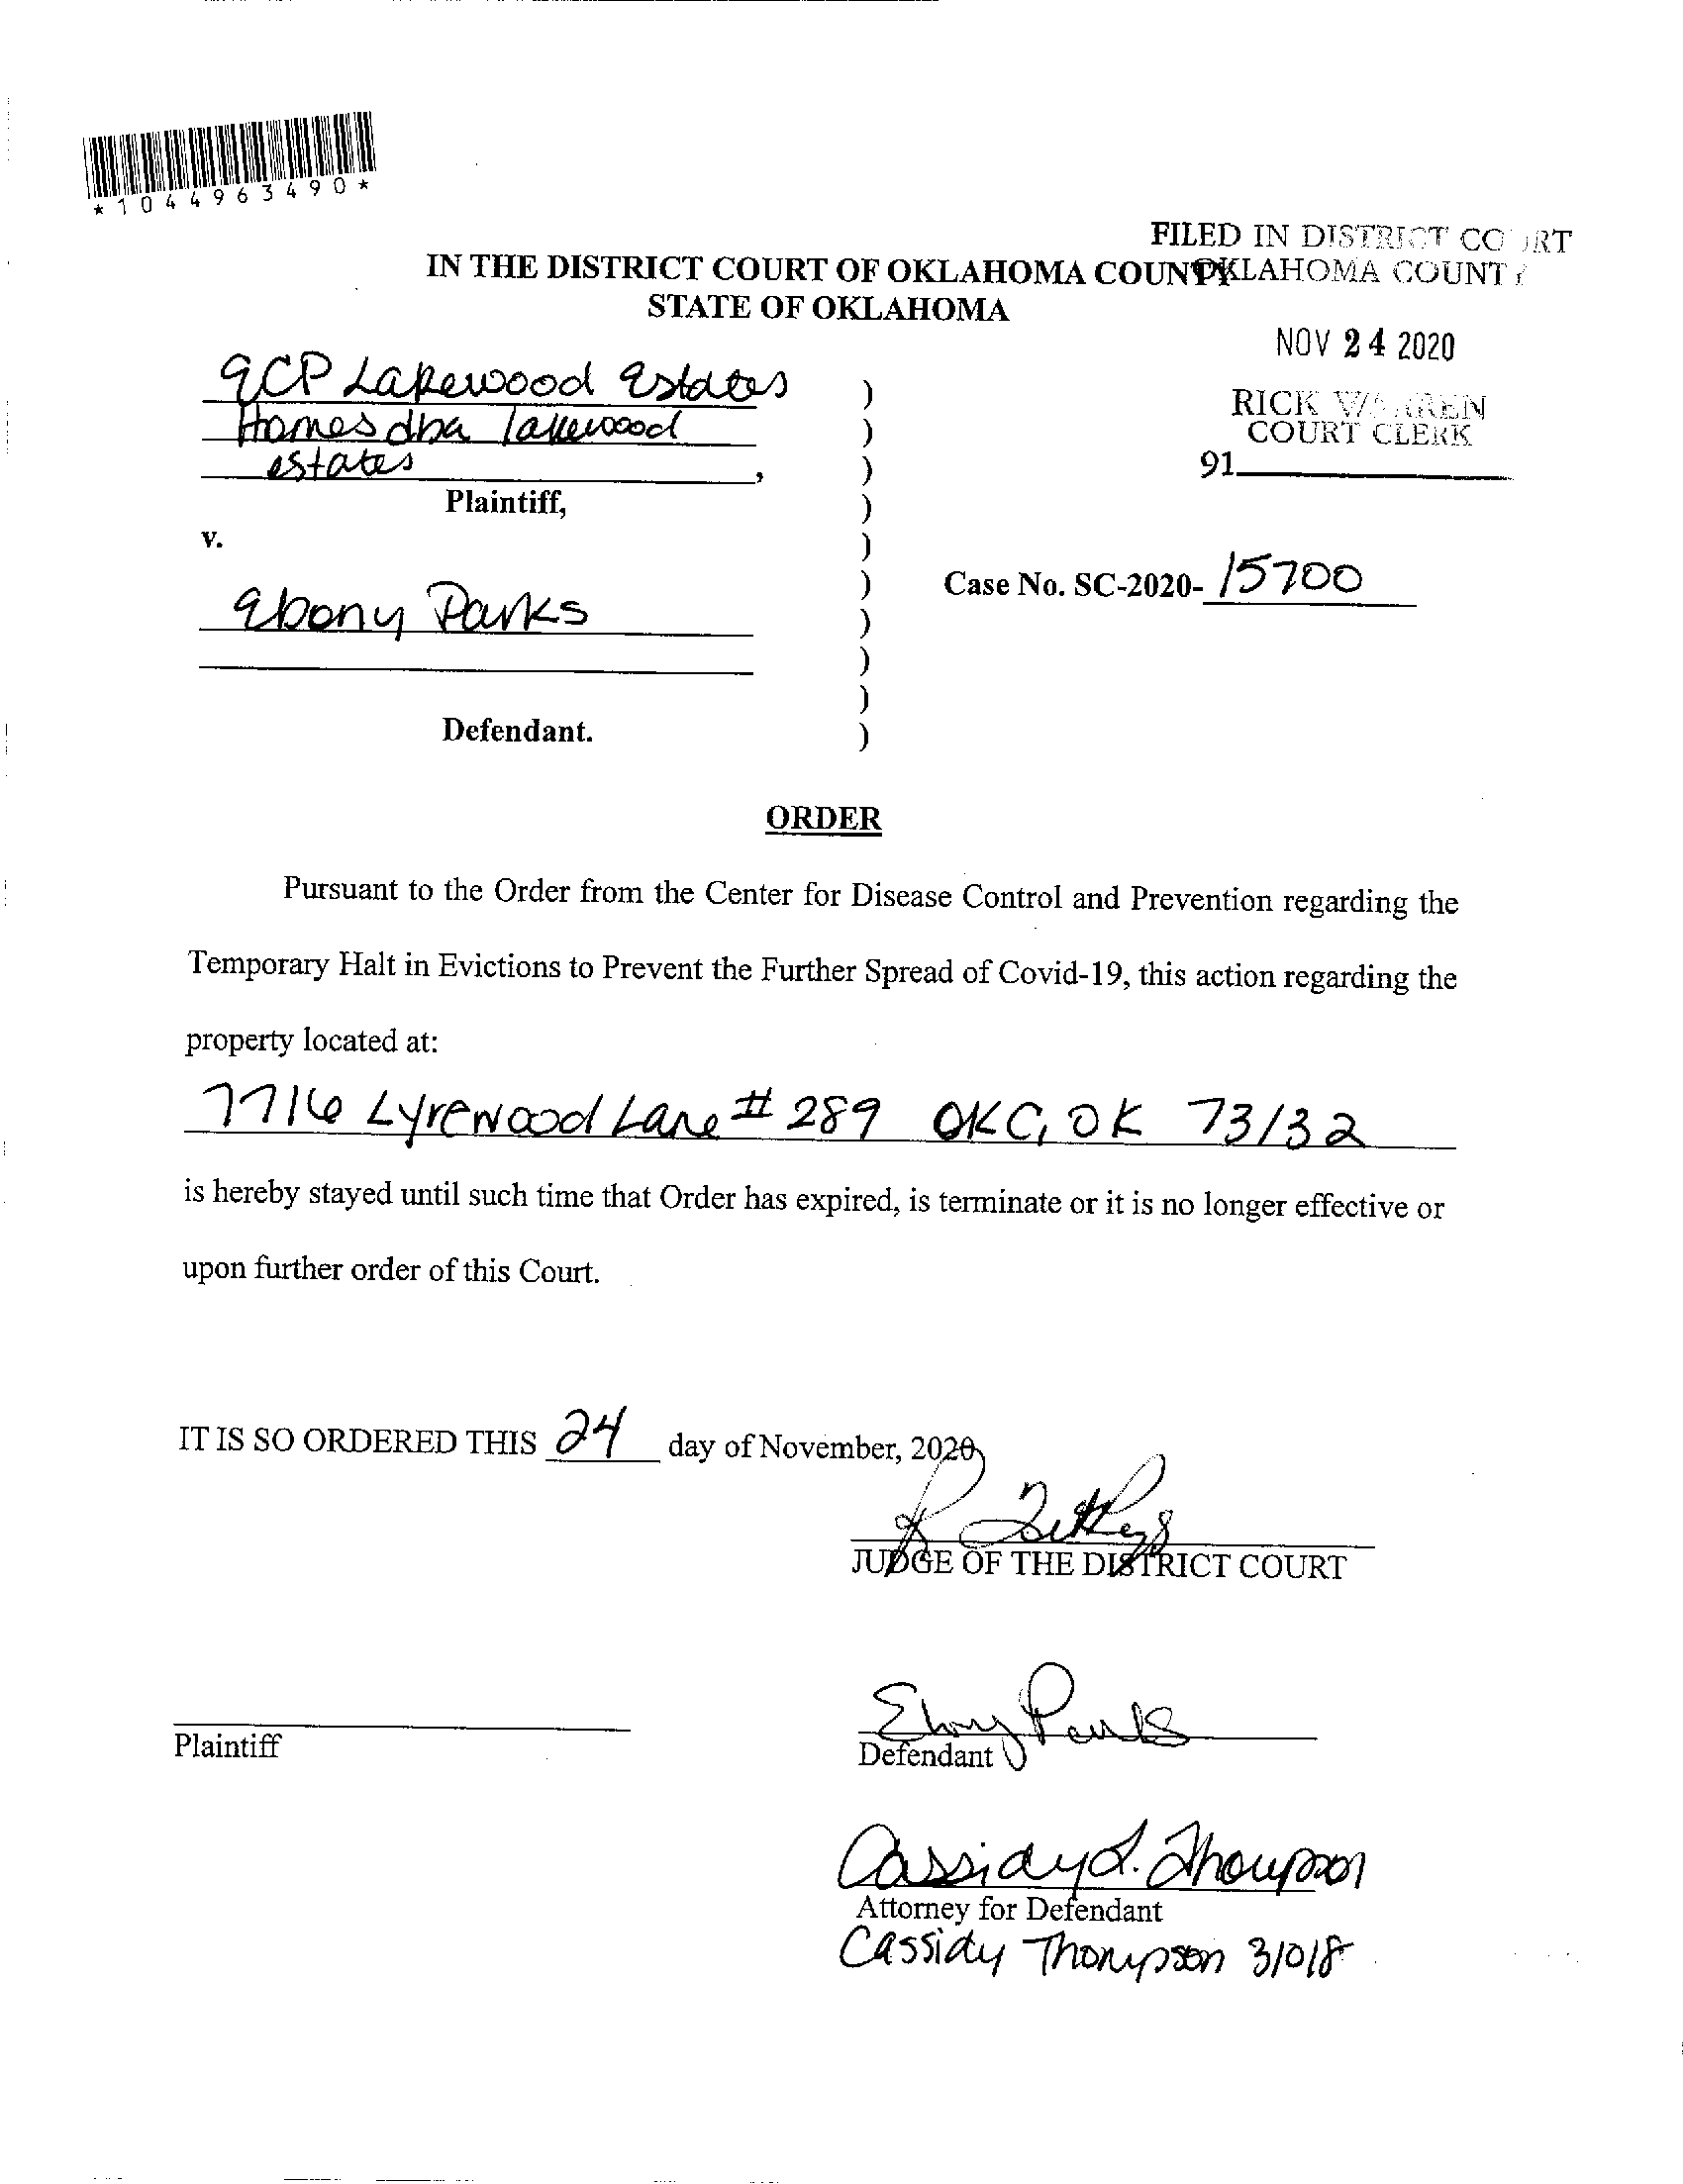 *1044963490*
FILED IN DISTRICT COURT
IN THE DISTRICT COURT OF OKLAHOMA COUNTY
OKLAHOMA COUNTY
STATE OF OKLAHOMA
NOV 24 2020
RICK WARREN
COURT CLERK
91
Lakewood Estates
Homes dba lakewood
estates,
Plaintiff,
v.
Ebony Parks
Defendant.
)
)
)
)
)
)
)
)
)
)
Case No. SC-2020-15700
ORDER
Pursuant to the Order from the Center for Disease Control and Prevention regarding the
Temporary Halt in Evictions to Prevent the Further Spread of Covid-19, this action regarding the
property located at:
7716 Lyrewood Lane # 289 OKC, OK 73132
is hereby stayed until such time that Order has expired, is terminate or it is no longer effective or
upon further order of this Court.
IT IS SO ORDERED THIS 24 day of November, 2020
JUDGE OF THE DISTRICT COURT
Ebony Parks
Plaintiff
Defendant
Cassidy L. Thompson
Attorney for Defendant
Cassidy Thompson 31018